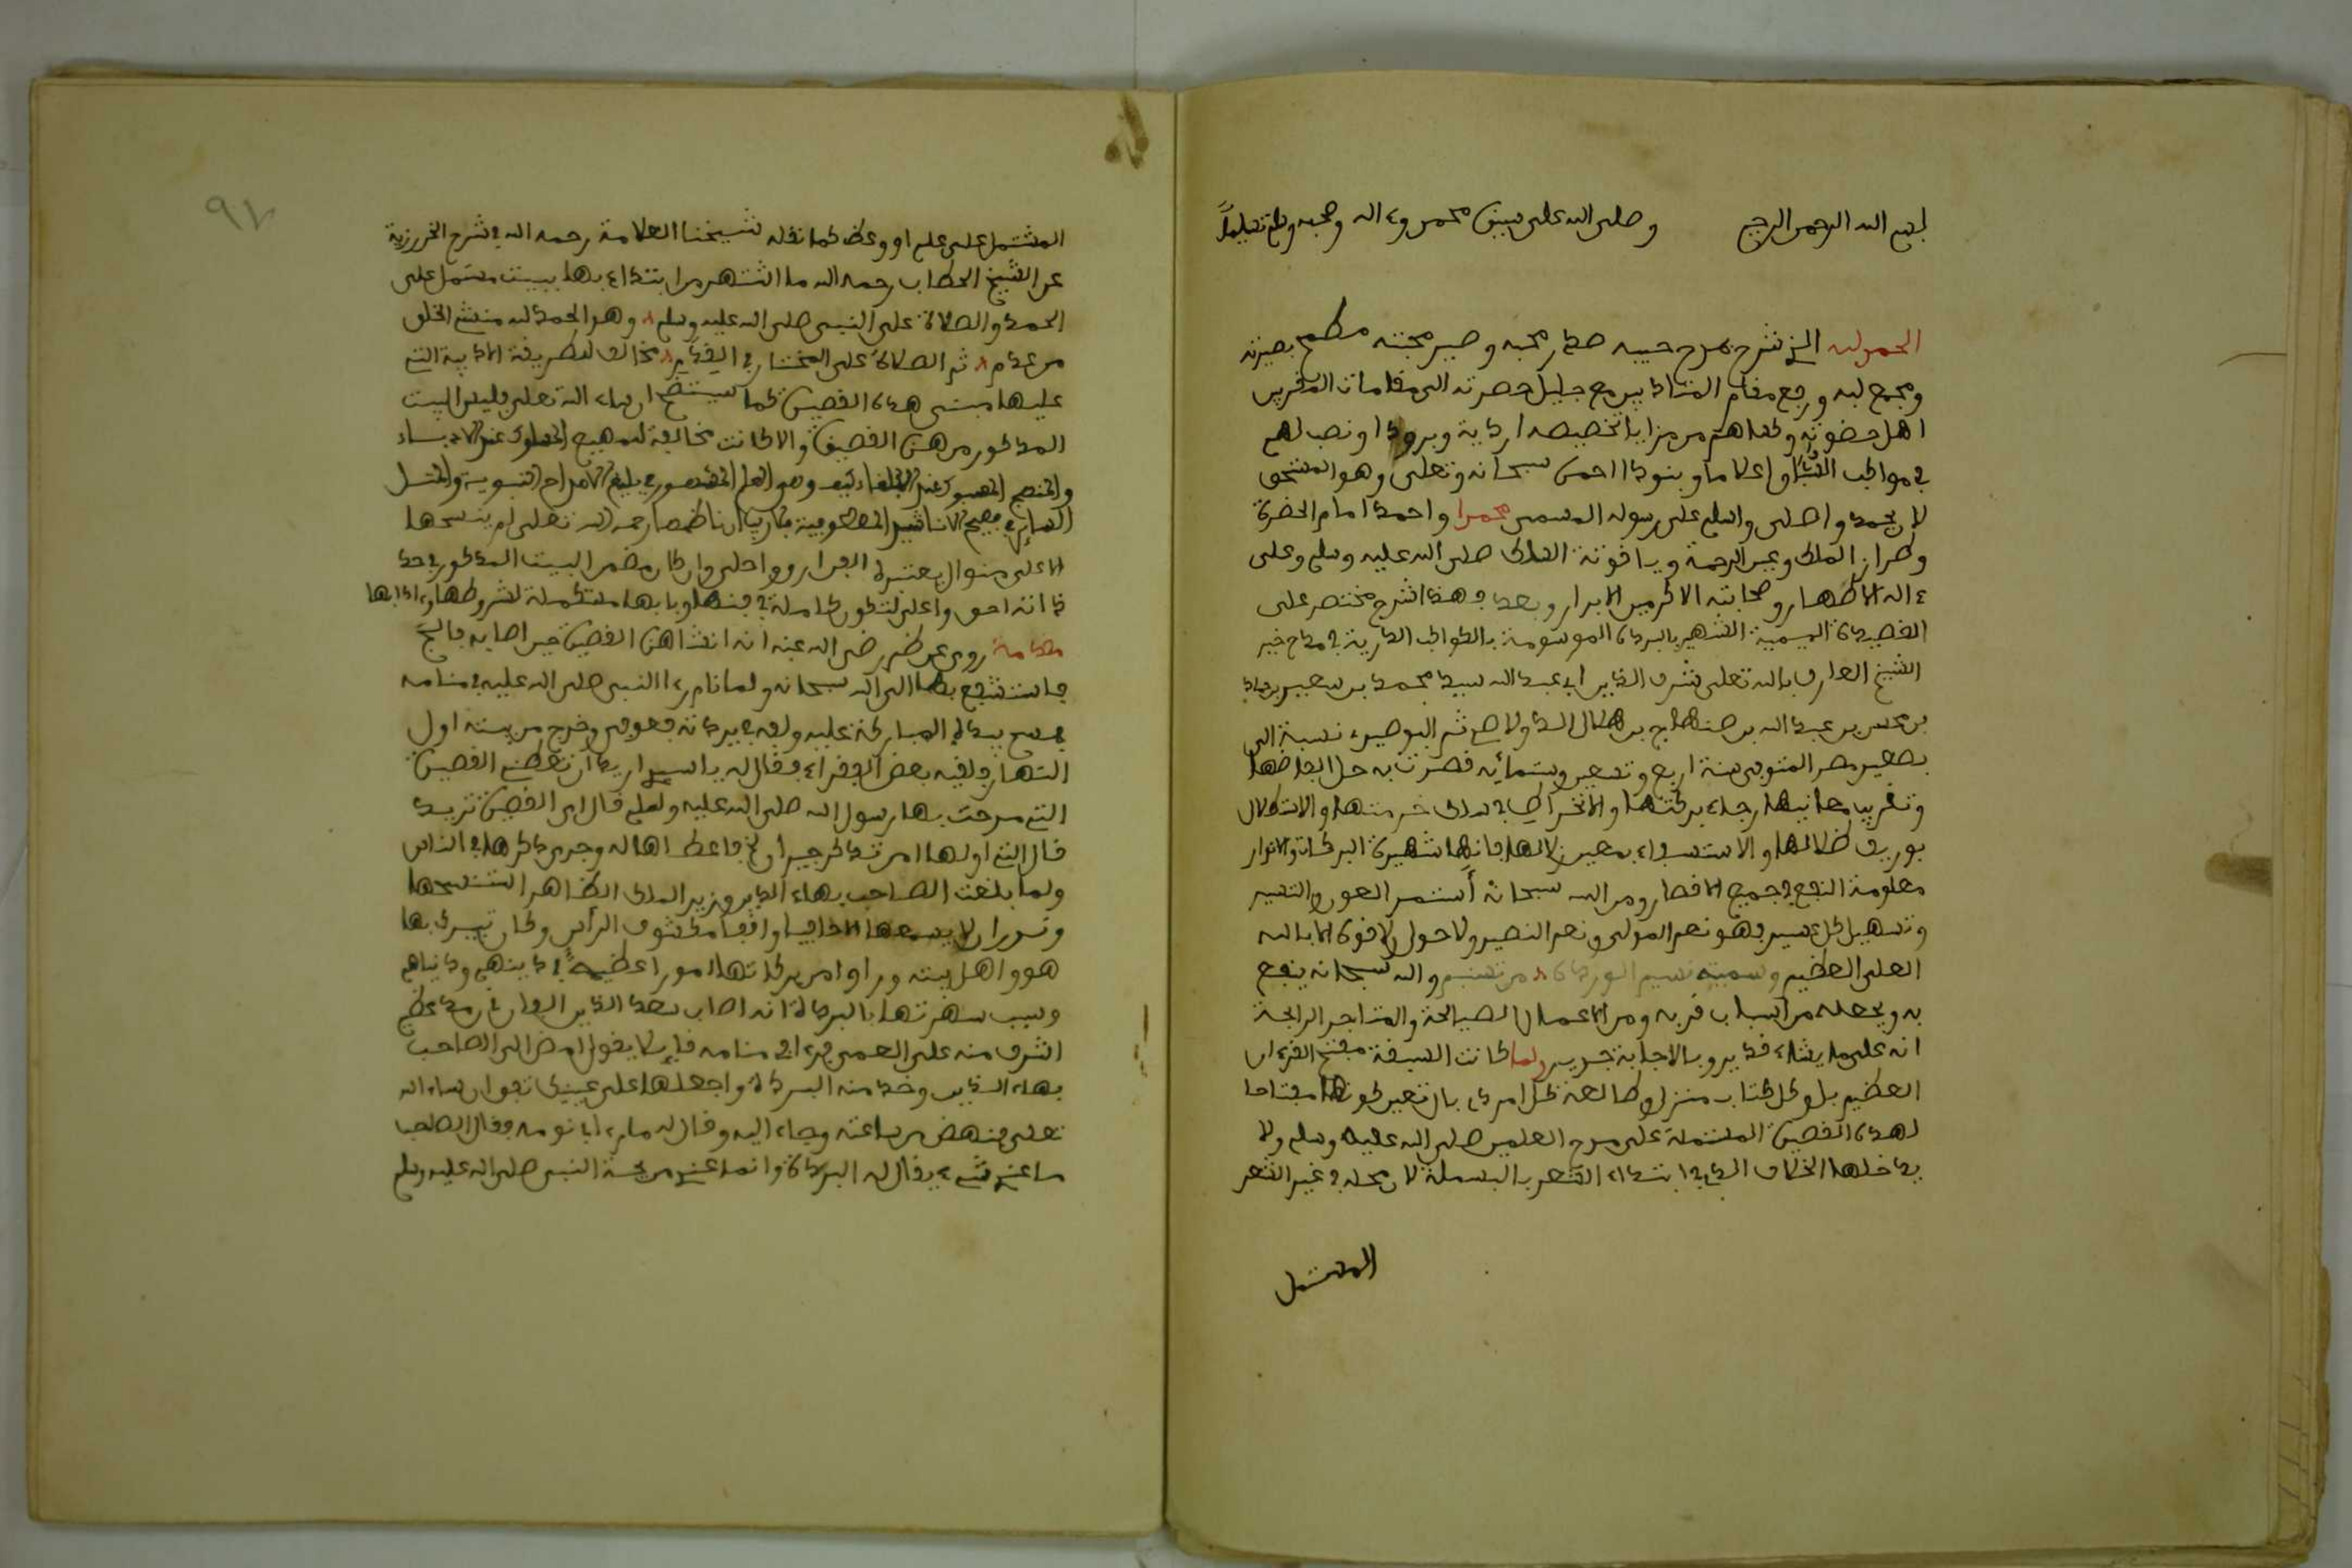 بسم الله الرحمن الرحيم وصلى الله على سيدنا محمد وءاله وصحبه وسلم تسليما
الحمد لله الذي شرح بمدح حبيبه صدر محبه وصير محبته مطمح بصيرته
ومجمع لبه ورفع مقام المتادبين مع جليل حضرته الى مقامات المقربين
اهل حضوته وكساهم من مزايا تخصيصه اردية وبرودا ونصب لهم
في مواكب اعلاما وبنودا احمده سبحانه وتعلى وهو المستحق
لان يحمد واصلي واسلم على رسوله المسمى محمدا واحمدا امام الحضرة
وطراز الملك وعين الرحمة وياقوتة الملك صلى الله عليه وسلم وعلى
ءاله الاطهار وصحابته الاكرمين الابرار وبعد فهذا شرح مختصر على
القصيدة الميمية الشهير بالبردة الموسومة بالكواكب الدرية في مدح خير
الشيخ العارف بالله تعلى شرف الدين ابي عبد الله سيد محمد بن سعيد بن حماد
بن محسن بن عبد الله بن صنهاج بن هلال الدولاصي ثم البوصيري نسبة الى
بصعيد مصر المتوفى سنة اربع وتسعين وستمائة قصدت به حل الفاظها
وتقريب معانيها رجاء بركتها والانخراط في سلك خدمتها والاستظلال
بوريف ظلالها والاستسقاء بمعين زلالها فانها شهيرة البركات والانوار
معلومة النفع في جميع الاقطار ومن الله سبحانه أستمد العون والتيسير
وتسهيل كل عسير فهو نعم المولى ونعم النصير ولا حول ولا قوة الا بالله
العلي العظيم وسميته نسيم الوردة من تسنيم والله سبحانه ينفع
به ويجعله من اسباب قربه ومن الاعمال الصالحة والمتاجر الرابحة
انه على ما يشاء قدير وبالاجابة جدير ولما كانت البسملة مفتح القرءان
العظيم بل وكل كتاب منزل وطالعة كل امر ذي بال تعين كونها مفتاحا
لهذه القصيدة المشتملة على مدح صلى الله عليه وسلم ولا
يدخلها الخلاف الذي في ابتداء الشعر بالبسملة لان محله في غير الشعر
المشتمل
٩٧
المشتمل على علم او وعظ كما نقله شيخنا العلامة رحمه الله في شرح الخزرجية
عن الشيخ الحطاب رحمه الله ما اشتهر من ابتداء بها ببيت مشتمل على
الحمد والصلاة على النبي صلى الله عليه وسلم وهو الحمد لله منشئ الخلق
من عدم ثم الصلاة على المختار في القدم مخالف لطريقة الادبية التي
عليها مبنى هذه القصيدة كما سيتضح ان شاء الله تعلى فليس البيت
المذكور من هذه القصيدة والا كانت مخالفة للمهيع المسلوك عند الادباء
الا على منوال يعتبره وان كان مضمن البيت المذكور في حد
ذاته احق واعلى لتكون كاملة في فنها وبابها مستكملة لشروطها وءادابها
مقدمة روي عن ناظمها رضي الله عنه انه انشا هذه القصيدة حين اصابه فالج
فاستشفع بها الى الله سبحانه ولما نام رءا النبي صلى الله عليه في منامه
فمسح بيده المباركة عليه ولفه في بردته فعوفي وخرج من بيته اول
النهار فلقيه بعض الفقراء فقال له يا سيد اريد ان تعطيني القصيدة
التي مدحت بها رسول الله صلى الله عليه وسلم قال اي القصيدة تريد
قال التي اولها امن تذكر جيران الخ فاعطاها له وجرى ذكرها في الناس
ولما بلغت الصاحب بهاء الدين وزير الملك الظاهر استنسخها
ونذر ان لا يسمعها الا حافيا واقفا مكشوف الرأس وكان يتبرك بها
هو واهل بيته وراوا من بركاتها امورا عظيمة في دينهم ودنياهم
وسبب شهرتها بالبردة انه اصاب سعد الدين الفارقي رمد عظيم
اشرف منه على العمى فرءا في منامه قائلا يقول امض الى الصاحب
بهاء الدين وخذ منه البردة واجعلها على عينيك تفق ان شاء الله
تعلى فنهض من ساعته وجاء اليه وقال له ما رءا في نومه فقال الصاحب
ما عندي شيء يقال له البردة وانما عندي مديحة النبي صلى الله عليه وسلم